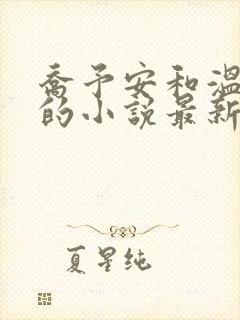 喬予安和溫
的小說最新
夏星纯